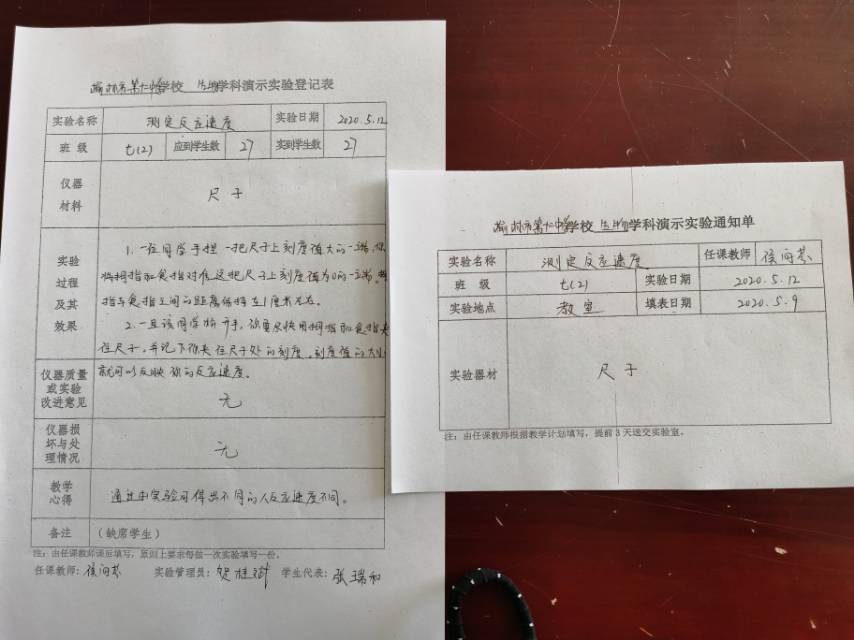 榆林市第七中学学校 生物学科演示实验登记表
实验名称 测定反应速度 实验日期 2020.5.12
班 级 七(2) 应到学生数 27 实到学生数 27
仪器
材料
尺子
实验
过程
及其
效果
1. 一位同学手捏一把尺子上刻度值大的一端,你
将拇指和食指对准这把尺子上刻度值为0的一端,拇
指与食指之间的距离保持在1厘米左右。
2. 一旦该同学松开手,你要尽快用拇指和食指夹
住尺子,并记下你夹住尺子处的刻度,刻度值的大小
就可以反映你的反应速度。
仪器质量
或实验
改进意见
无
仪器损
坏与处
理情况
无
教学
心得
通过本实验可得出不同的人反应速度不同。
备注 (缺席学生)
注:由任课教师课后填写,原则上要求每做一次实验填写一份。
任课教师: 实验管理员: 学生代表:张瑞和
榆林市第七中学学校 生物学科演示实验通知单
实验名称 测定反应速度 任课教师
班 级 七(2) 实验日期 2020.5.12
实验地点 教室 填表日期 2020.5.9
实验器材 尺子
注:由任课教师根据教学计划填写,提前3天送交实验室。